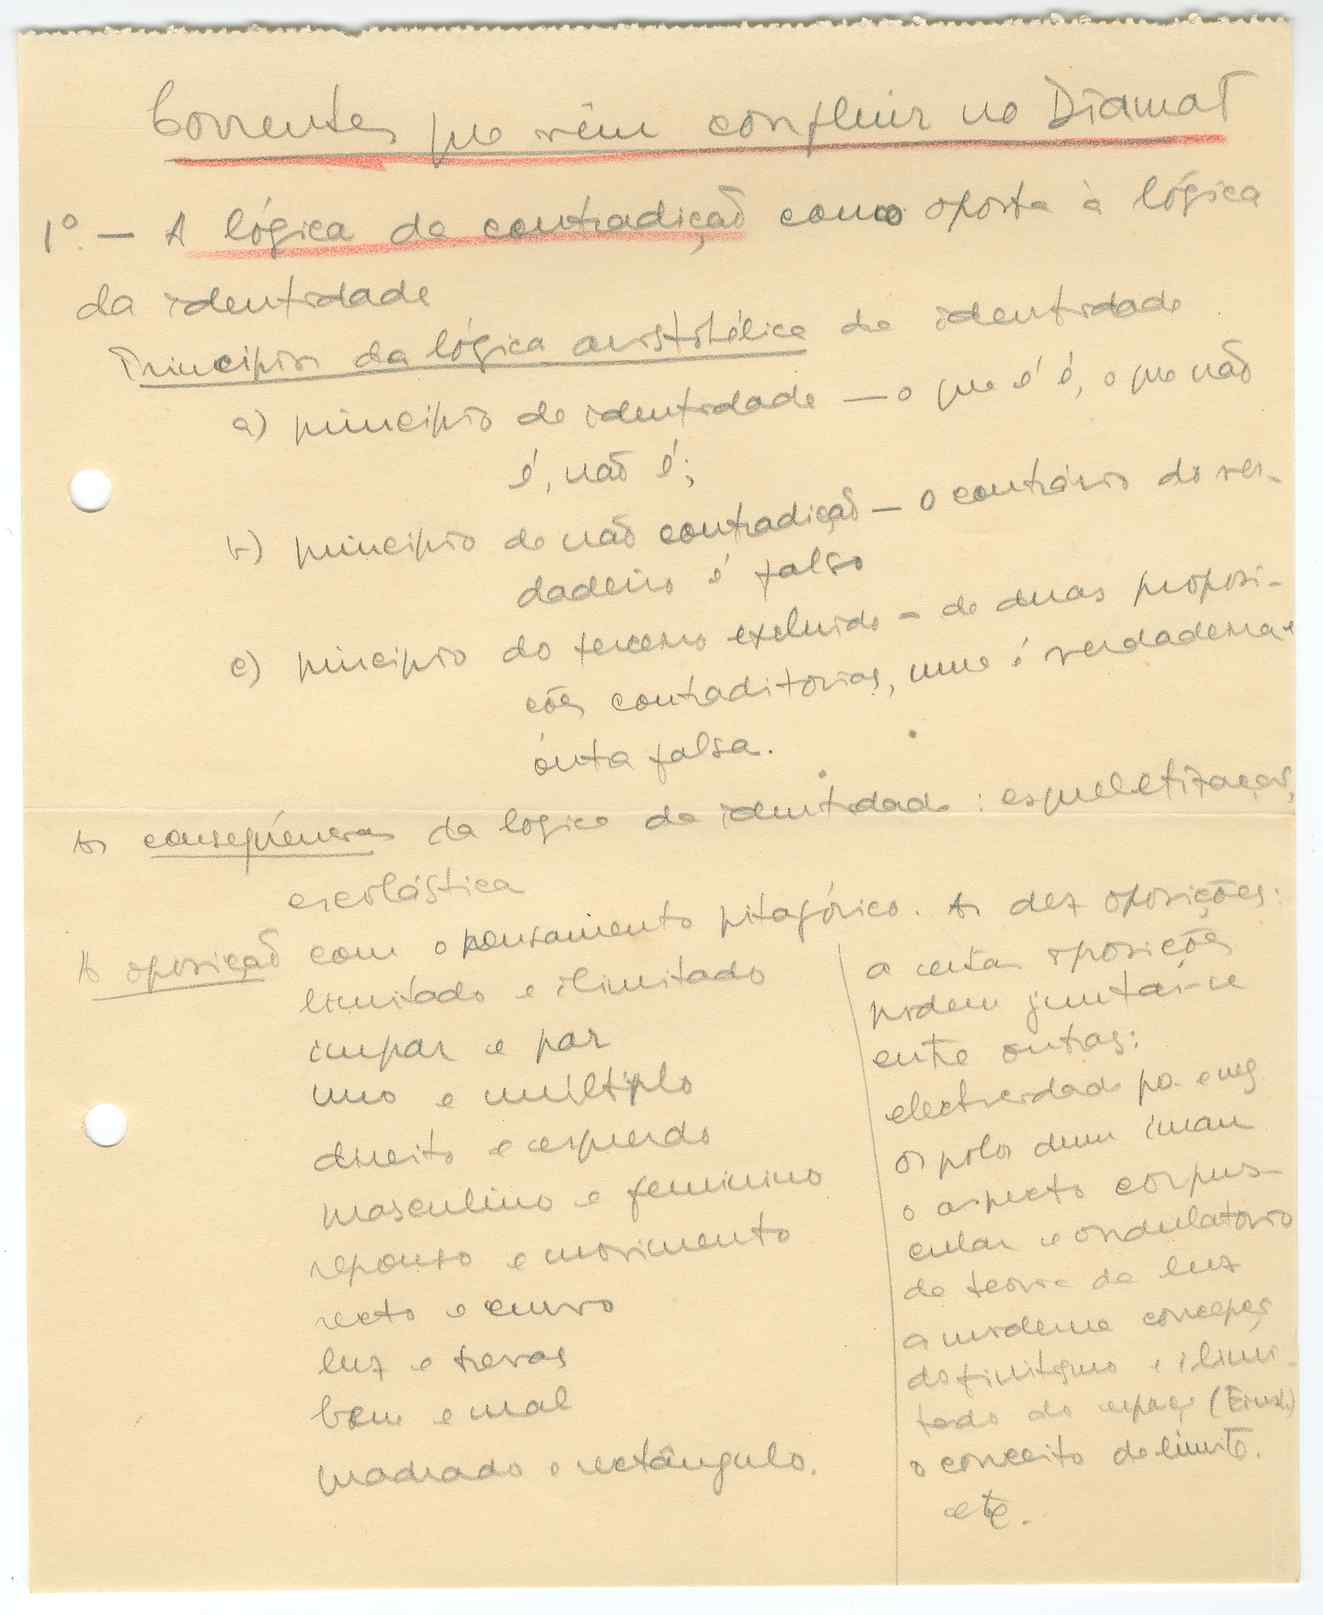 Correntes que vêm confluir no Diamat
1º. — A lógica da contradição como oposta à lógica
da identidade
Princípios da lógica aristotélica da identidade
a) princípio de identidade — o que é é, o que não
é, não é;
b) princípio de não contradição — o contrário do ver-
dadeiro é falso
c) princípio do terceiro excluido - de duas proposi-
ções contraditorias, uma é verdadeira e
outra falsa.
As consequências da logica da identidade : esqueletização,
escolástica
A oposição com o pensamento pitagórico. As dez oposições:
limitado e ilimitado
impar e par
uno e múltiplo
direito e esquerdo
masculino e feminino
repouso e movimento
recto e curvo
luz e trevas
bem e mal
quadrado e rectângulo.
a estas oposições
podem juntar-se
entre outras:
electricidade pos. e neg
os polos dum iman
o aspecto corpus-
cular e ondulatorio
da teoria da luz
a moderna concepção
do finitismo e ilimi-
tado do espaço (Einst.)
o conceito de limite.
etc.